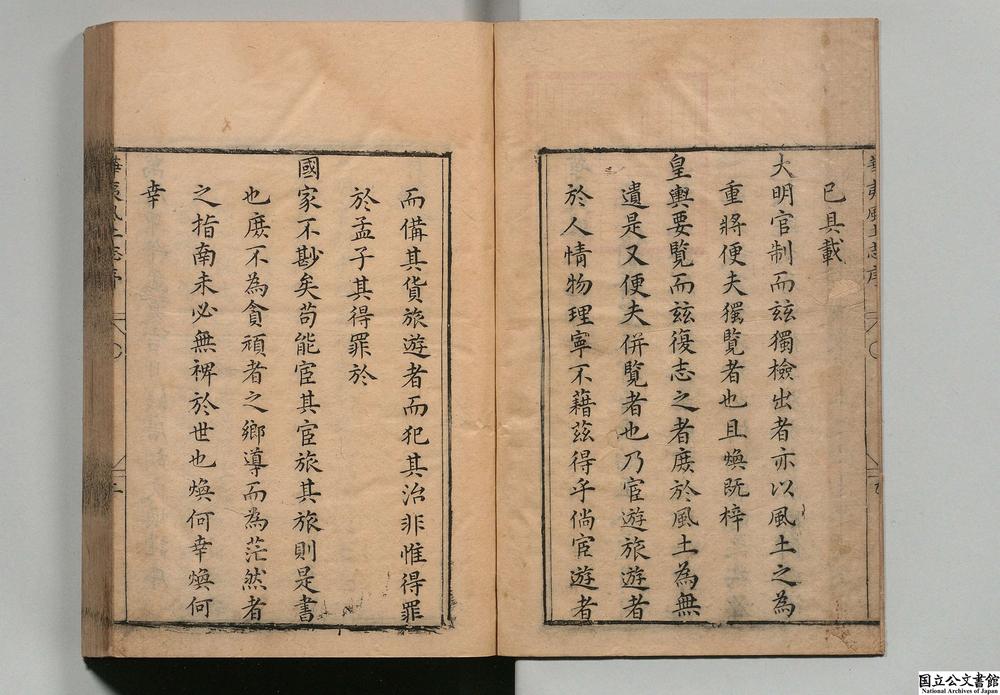 已具載
大明官制而兹獨檢出者亦以風土之為
重將便夫獨覽者也且煥既梓
皇輿要覽而兹復志之者庻於風土為無
遺是又便夫併覽者也乃宦遊旅遊者
於人情物理寧不藉兹得乎倘宦遊者
而備其貨旅遊者而犯其治非惟得罪
於孟子其得罪於
國家不尠矣苟能宦其宦旅其旅則是書
也庻不為貪頑者之鄉導而為茫然者
之指南未必無裨於世也煥何幸煥何
幸
華夷風土志序
国立公文書館
National Archives of Japan